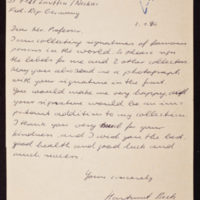 Fed. Rep. Germany
Dear Mr. Professor,
I am collecting signatures of famous
persons in the world. So please sign
the labels for me and 2 other collectors
May you also send me a photograph
with your signature in the front.
You would make me very happy and
your signature would be an im-
portant addition to my collection.
I thank you very much for your
kindness and I wish you the best,
good health and good luck and
much success
Yours sincerely